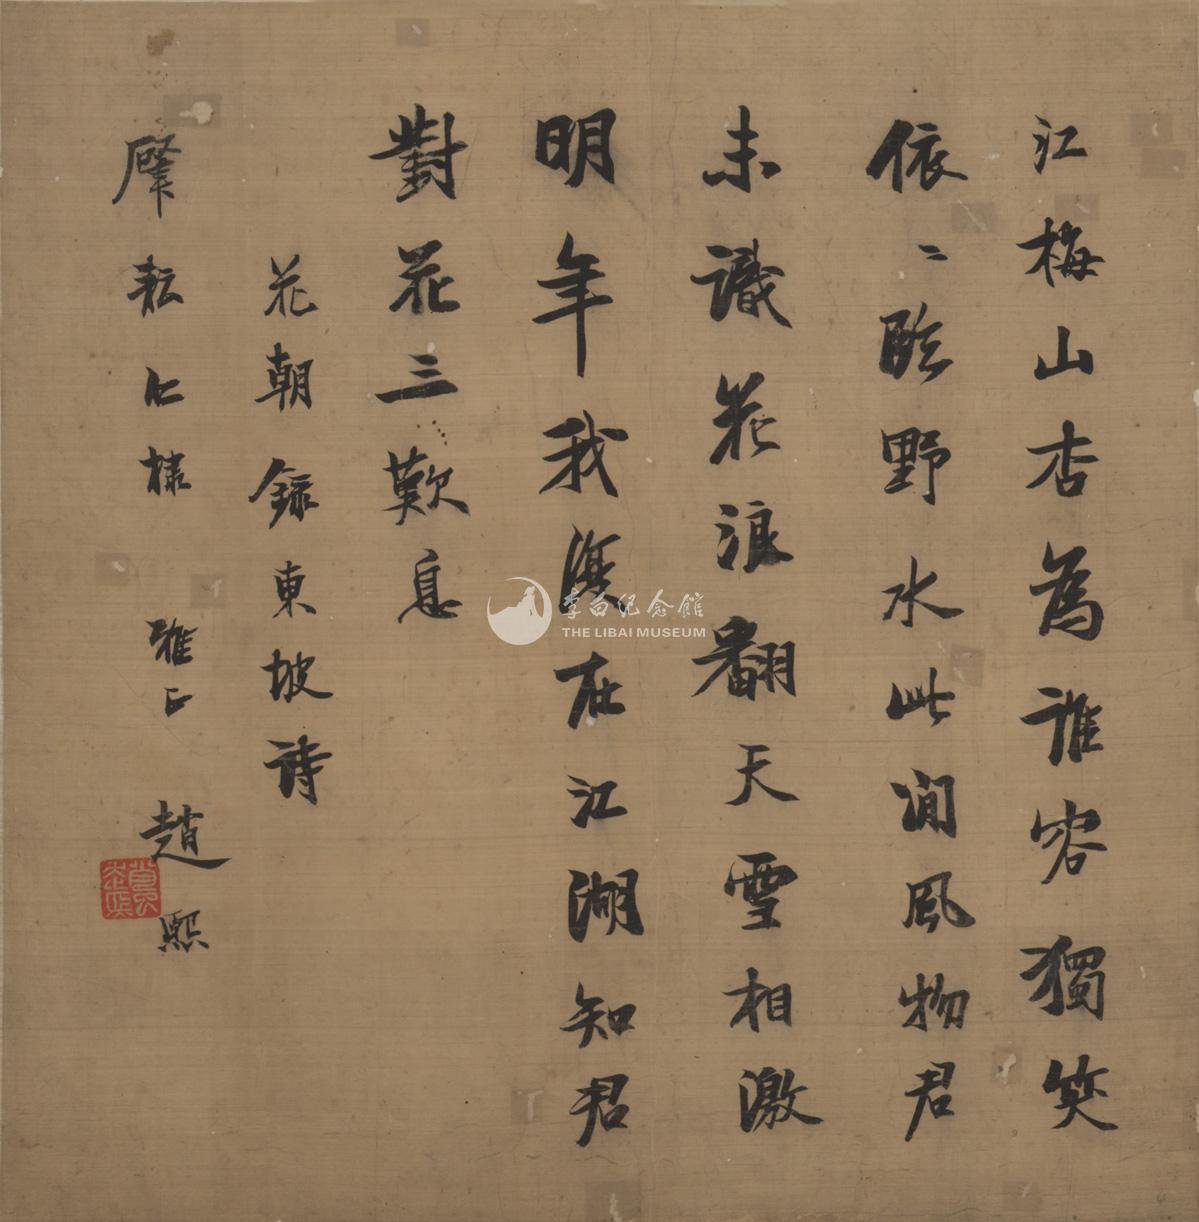 江梅山杏為誰容獨笑
依〻臨野水此間風物君
未識花浪翻天雪相激
明年我復在江湖知君
對花三歎息
花朝錄東坡詩
肇耘仁棣 雅正 趙熙
李白纪念館
THE LIBAI MUSEUM